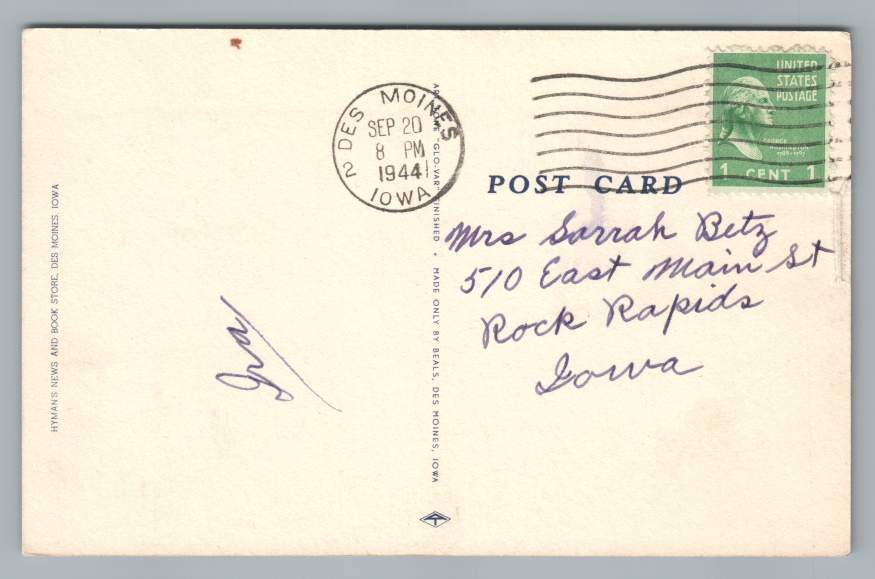 DES MOINES
SEP 20
8 PM
1944
2
IOWA
UNITED
STATES
POSTAGE
GEORGE
WASHINGTON
1 CENT 1
POST CARD
Mrs Sarrah Betz
510 East Main St
Rock Rapids
Iowa
Ira
HYMAN'S NEWS AND BOOK STORE, DES MOINES, IOWA
"GLO-VAR" FINISHED • MADE ONLY BY BEALS, DES MOINES, IOWA